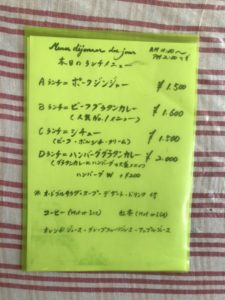 Menu déjeuner du jour
本日のランチメニュー
AM 11:30～
PM 2:00まで
Aランチ=ポークジンジャー ¥1.500
Bランチ=ビーフグラタンカレー ¥1.600
(人気No.1メニュー)
Cランチ=シチュー ¥1.500
(ビーフ・ポーク・クリーム)
Dランチ=ハンバーググラタンカレー ¥2.000
(グラタンカレーにハンバーグ
ハンバーグ W +¥200
サラダ・スープ・デザート・ドリンク付
コーヒー(Hot or Ice) 紅茶(Hot or Ice)
オレンジジュース・グレープフルーツジュース・アップルジュース